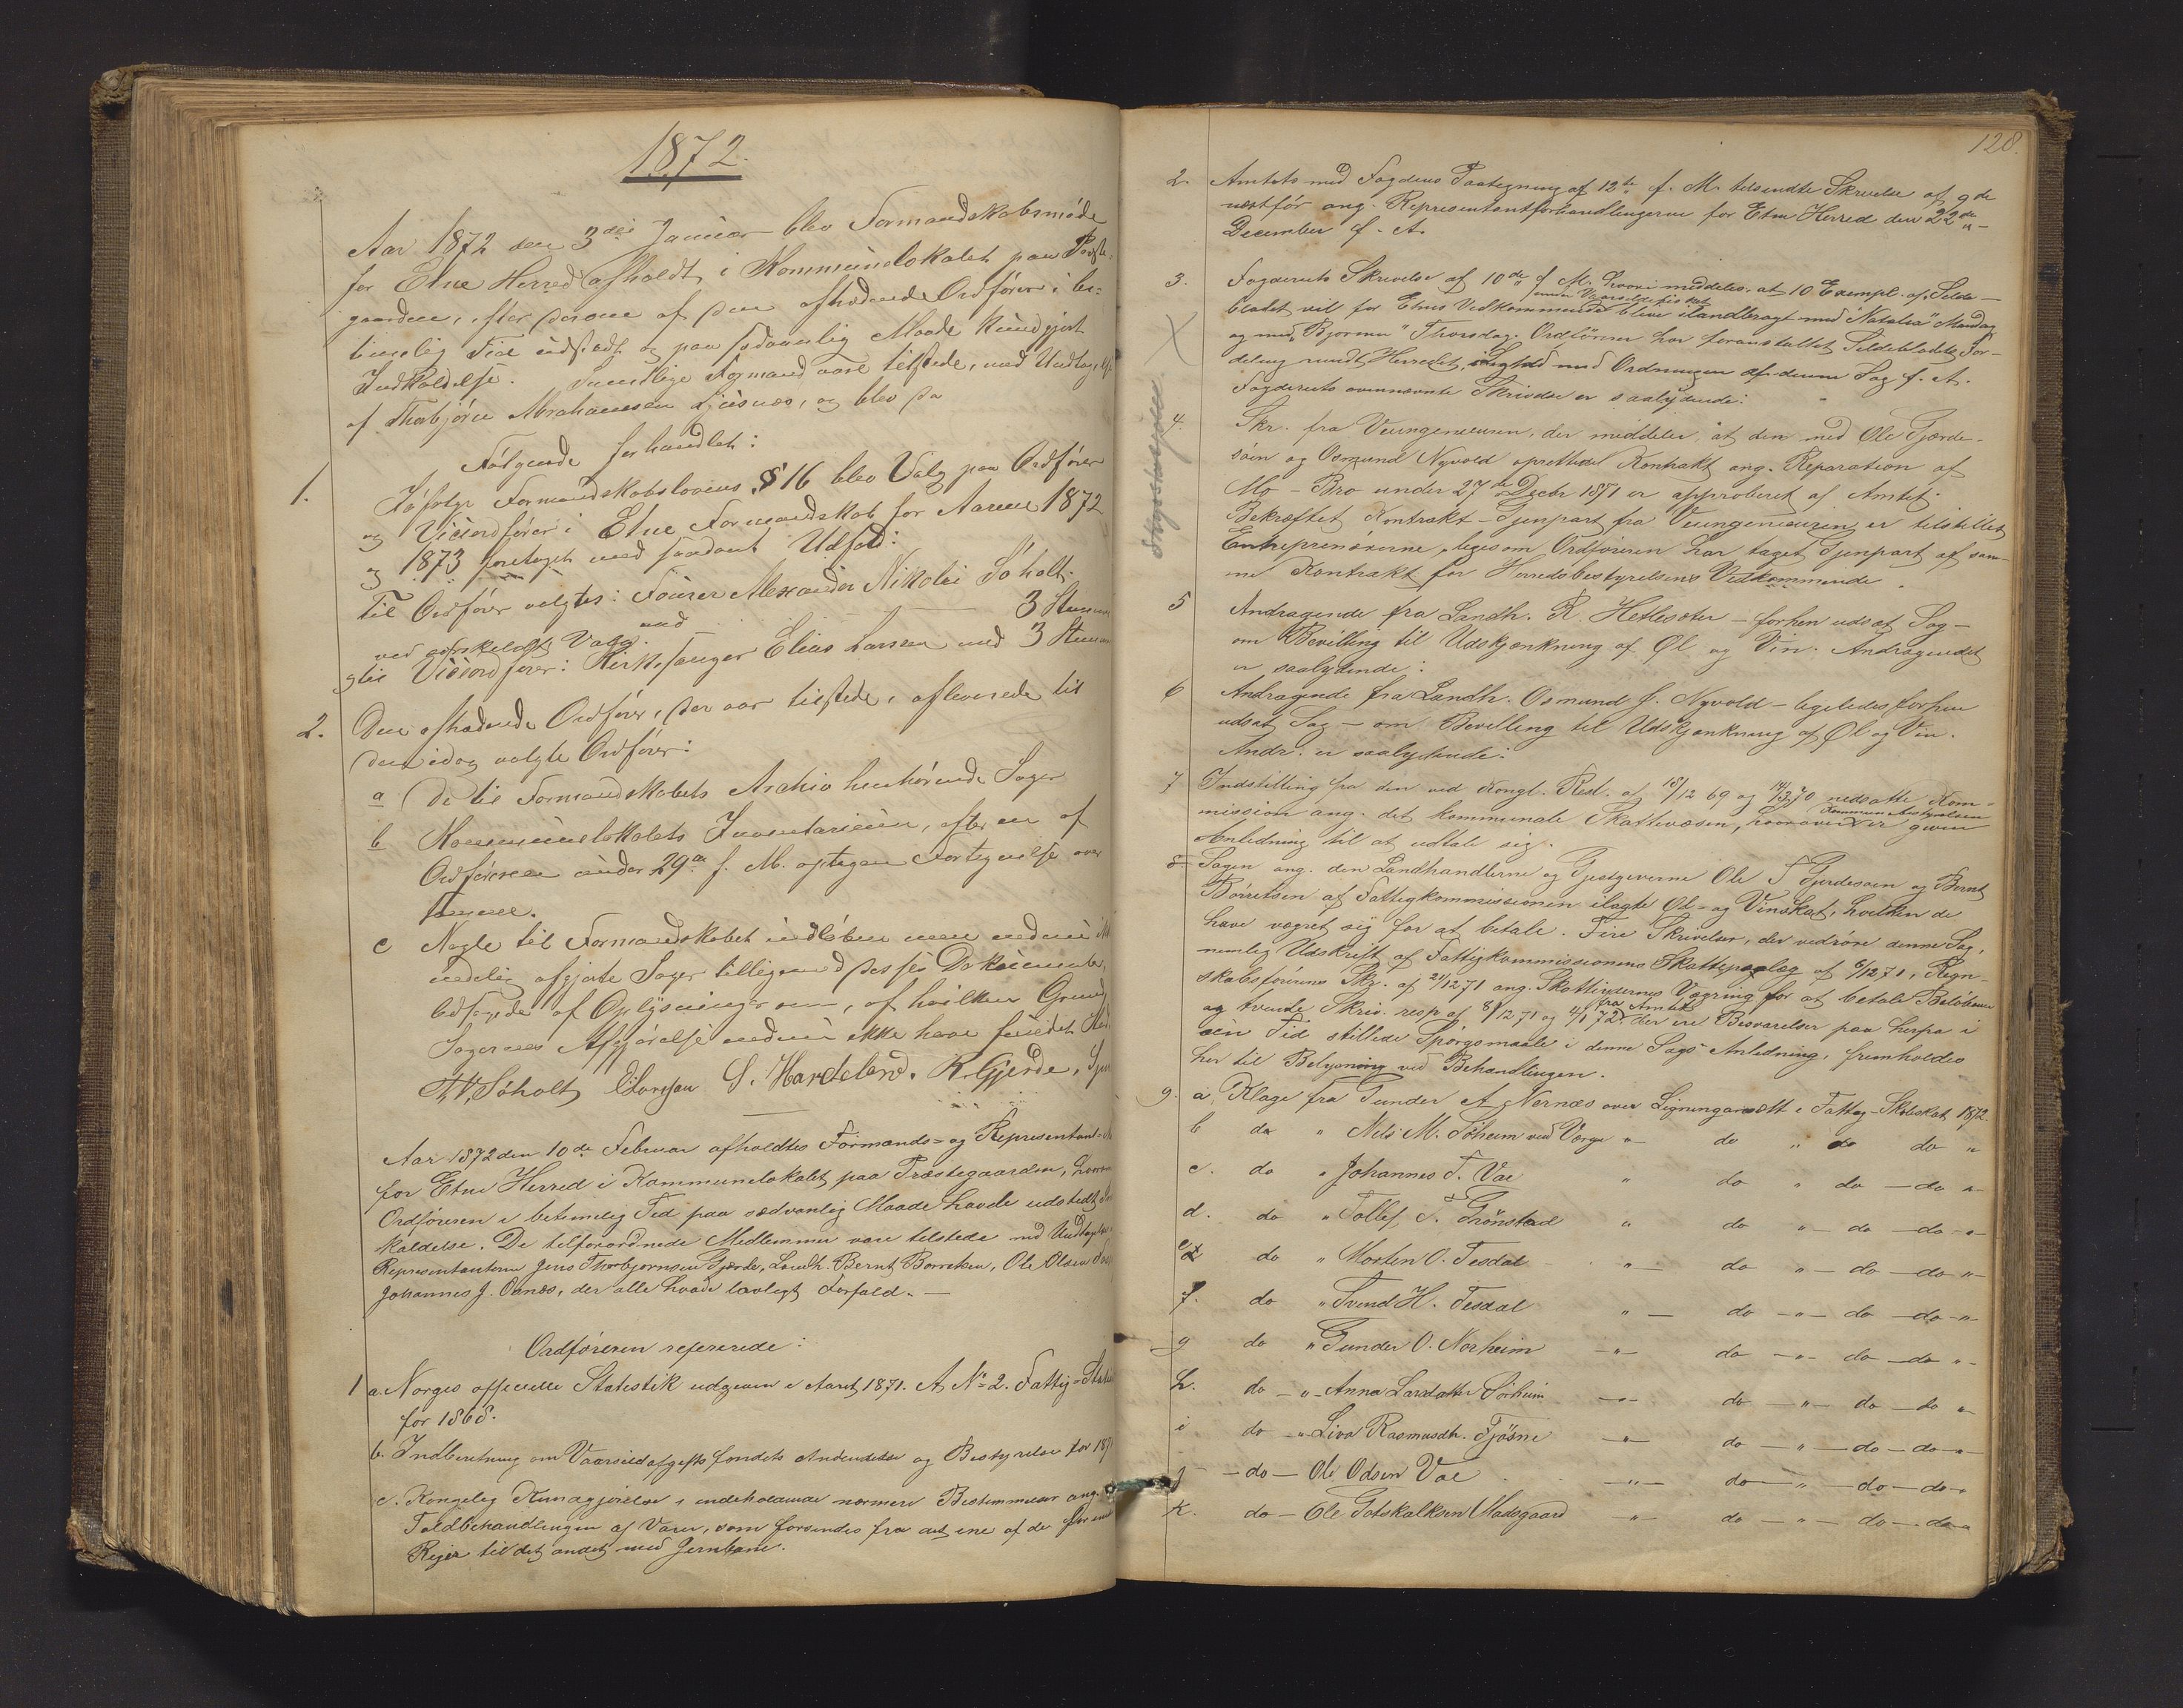 1872.
Aar 1872 den 3die Januar blev Formandskabsmøde
for Etne Herred afholdt i Kommunelokalet paa Præste-
gaarden, efter den af den aftrædende Ordfører i be-
timelig Tid udstedt og paa sædvanlig Maade kundgjort
Indkaldelse. Samtlige Formænd vare tilstede, med Undtagelse
af Thorbjörn Abrahamsen Ljusnæs, og blev da
Følgende forhandlet:
1. Ifølge Formandskabslovens § 16 blev Valg paa Ordfører
og Viceordfører i Etne Formandskab for Aarene 1872
og 1873 foretaget med saadant Udfald:
Til Ordfører valgtes: Fourer Alexander Nikolai Söholt
ved omskeldt Valg med 3 Stemmer
og til Viceordfører: Kirkesanger Elias Larssen med 3 Stemmer
2. Den aftrædende Ordfører, der var tilstede, afleverede til
den idag valgte Ordfører:
a De til Formandskabets Archiv henhørende Sager
b Kommunelokalets Inventarium, efter en af
Ordføreren under 29de f. M. optagen Fortegnelse over
samme.
c Nogle til Formandskabet indløbne men endnu ikke
endelig afgjorte Sager tilligemed disses Dokumenter,
ledsagede af Oplysninger om, af hvilken Grund
Sagernes Afgjørelse endnu ikke have fundet Sted
A. N. Söholt E Larssen S. Hardeland. R. Gjerde,
Aar 1872 den 10de Februar afholdtes Formands- og Representant-
for Etne Herred i Kommunelokalet paa Præstegaarden, hvortil
Ordføreren i betimelig Tid paa sædvanlig Maade havde udstedt
kaldelse. De tilforordnede Medlemmer vare tilstede med Undtagelse
Representanterne Jens Thorbjørnsen Gjerde, Landh. Bernt Børretsen, Ole Olsen
Johannes J. Osnæs, der alle havde lovligt Forfald. —
Ordføreren refererede:
1 a. Norges officielle Statistik udgiven i Aaret 1871. A No 2. Fattig-Statistik
for 1868.
b. Indberetning om Vaarsildafgiftsfondets Anvendelse og Bestyrelse for 187
c. Kongelig Kundgjørelse, indeholdende nærmere Bestemmelser ang.
Toldbehandlingen af Varer, som forsendes fra det ene af de forenede
Riger til det andet med Jernbane.
128.
2. Amtets med Fogdens Paategning af 12te f. M. tilsendte Skrivelse af 9de
næstfør ang. Representantforhandlingerne for Etne Herred den 22de
December f. A.
3. Fogderiets Skrivelse af 10de f. M. hvori meddeles, at 10 Exempl. af Silde-
bladet vil for Etnes Vedkommende under Vaarsildfisket blive ilandbragt med "Natalia" Mandag
og med "Bjørnen" Thorsdag. Ordføreren har foranstaltet Sildebladets For-
deling rundt Herredet, i Lighed med Ordningen af denne Sag f. A.
Fogderiets ovennævnte Skrivelse er saalydende:
Skydsskafferi
4. Skr. fra Veiingenieuren, der meddeler, at den med Ole Gjerde-
søen og Osmund Nyvold oprettede Kontrakt ang. Reparation af
Mo-Bro under 27de Decbr 1871 er approberet af Amtet.
Bekræftet Kontrakt-Gjenpart fra Veiingenieuren er tilstillet
Entreprenørerne, ligesom Ordføreren har taget Gjenpart af sam-
me Kontrakt for Herredsbestyrelsens Vedkommende.
5 Andragende fra Landh. R. Hetlesæter — forhen udsat Sag —
om Bevilling til Udskjænkning af Øl og Vin. Andragendet
er saalydende:
6 Andragende fra Landh. Osmund J. Nyvold — ligeledes forhen
udsat Sag — om Bevilling til Udskjænkning af Øl og Vin.
Andr. er saalydende:
7 Indstilling fra den ved Kongl. Resl. af 18/12 69 og 14/3 70 nedsatte Kom-
mission ang. det kommunale Skattevæsen, hvorover Kommunebestyrelsen er given
Anledning til at udtale sig.
8 Sagen ang. den Landhandlerne og Gjestgiverne Ole T Gjerdesøen og Bernt
Børretsen af Fattigkommissionen ilagte Øl- og Vinskat, hvilken de
have vægret sig for at betale. Fire Skrivelser, der vedrøre denne Sag,
nemlig Udskrift af Fattigkommissionens Skattepaalæg af 6/12 71, Regn-
skabsførerens Skr. af 21/12 71 ang. Skattiydernes Vægring for at betale Beløbene
og tvende Skriv. fra Amtet resp. af 8/12 71 og 4/1 72. der ere Besvarelser paa herfra i
sin Tid stillede Spørgsmaale i denne Sags Anledning, fremholdes
her til Belysning ved Behandlingen.
9. a, Klage fra Gunder A. Nernæs over Ligningansætt i Fattig-Skoleskat 1872.
b do " Nils M. Tøheim ved Værge " — do " do do "
c. do " Johannes T. Vae " do " do — do "
d. do " Tollef T. Grönstad " do " — do — do — "
e do " Morten O. Tesdal " — do " — do — do "
f. do " Svend H. Tesdal " — do — " — do — do — "
g do " Gunder O. Norheim — " — do — " — do — do "
h. do — " — Anna Larsdatter Sörheim — " — do — " — do — do "
i do — " Liva Rasmusdtr. Fjösne — " — do — " — do — do — "
j — do — Ole Odsen Vae — " — do — " — do — do "
k. do — Ole Gotskalksen Madsgaard — " — do — " — do — do "